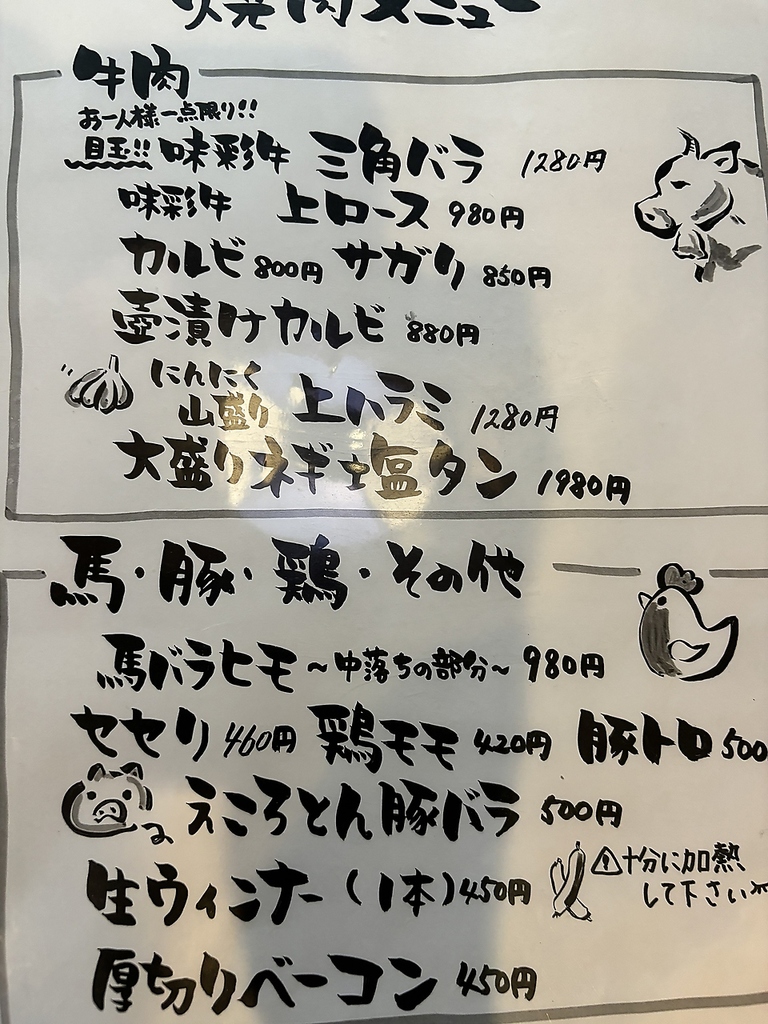 焼肉メニュー
牛肉
お一人様一点限り!!
目玉!! 味彩牛 三角バラ 1280円
味彩牛 上ロース 980円
カルビ 800円 サガリ 850円
壺漬けカルビ 880円
にんにく
山盛り 上ハラミ 1280円
大盛りネギ塩タン 1980円
馬・豚・鶏・その他
馬バラヒモ ~中落ちの部分~ 980円
セセリ 460円 鶏モモ 420円 豚トロ 500
えころとん豚バラ 500円
生ウィンナー (1本) 450円 ⚠十分に加熱
して下さい
厚切りベーコン 450円